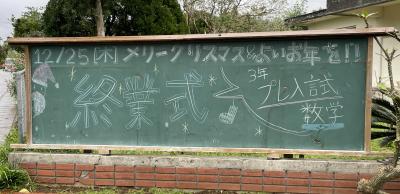 12/25(木)メリークリスマス&よいお年を!!
終業式
3年
プレ入試
数学